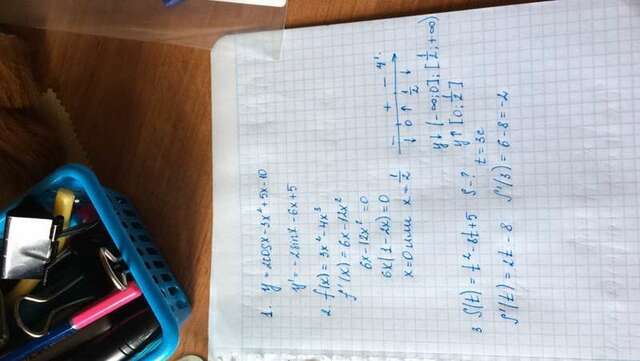 1. y = 2cosx - 3x² + 5x - 10
y' = -2sinx - 6x + 5
2. f(x) = 3x² - 4x³
f'(x) = 6x - 12x²
6x - 12x² = 0
6x(1 - 2x) = 0
x = 0 или x = 1/2
- + - y'
↓ 0 ↑ 1/2 ↓
y↓ (-∞; 0]; [1/2; +∞)
y↑ [0; 1/2]
3 S(t) = t² - 8t + 5 S - ?
t = 3c
S'(t) = 2t - 8 S'(3) = 6 - 8 = -2